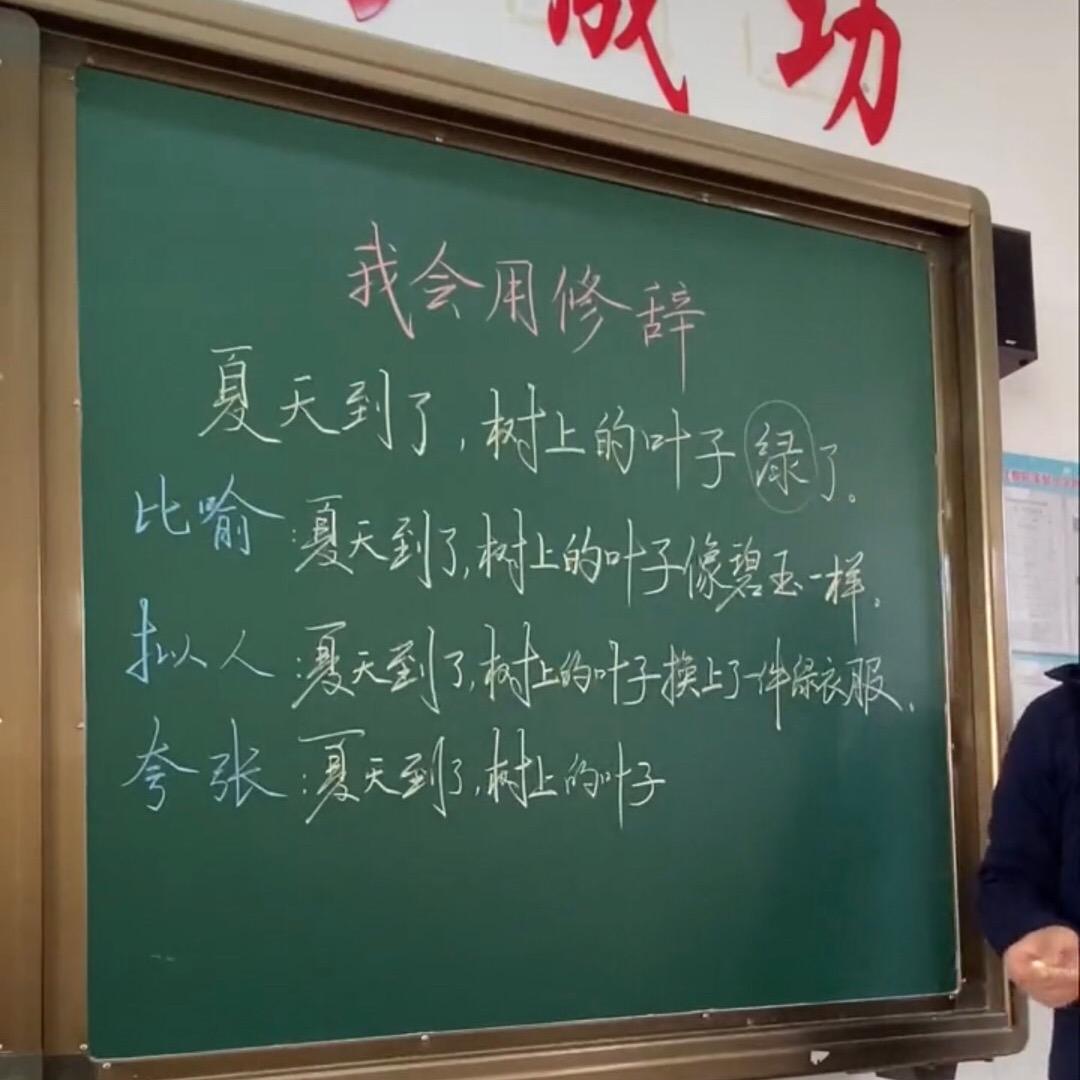 成功
我会用修辞
夏天到了,树上的叶子绿了。
比喻:夏天到了,树上的叶子像碧玉一样。
拟人:夏天到了,树上的叶子换上了一件绿衣服。
夸张:夏天到了,树上的叶子